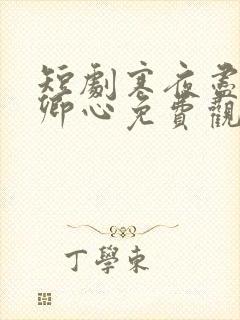 短劇寒夜盡
卿心免費觀
丁學東